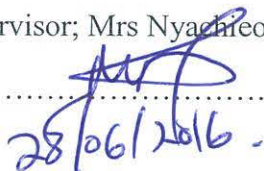 rvisor; Mrs Nyachieo
28/06/2016.